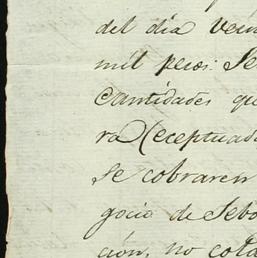 del dia vein
mil pesos: Se
Cantidades qu
ra (eceptuada
se cobraren
gocio de Sebo
ción, no cola